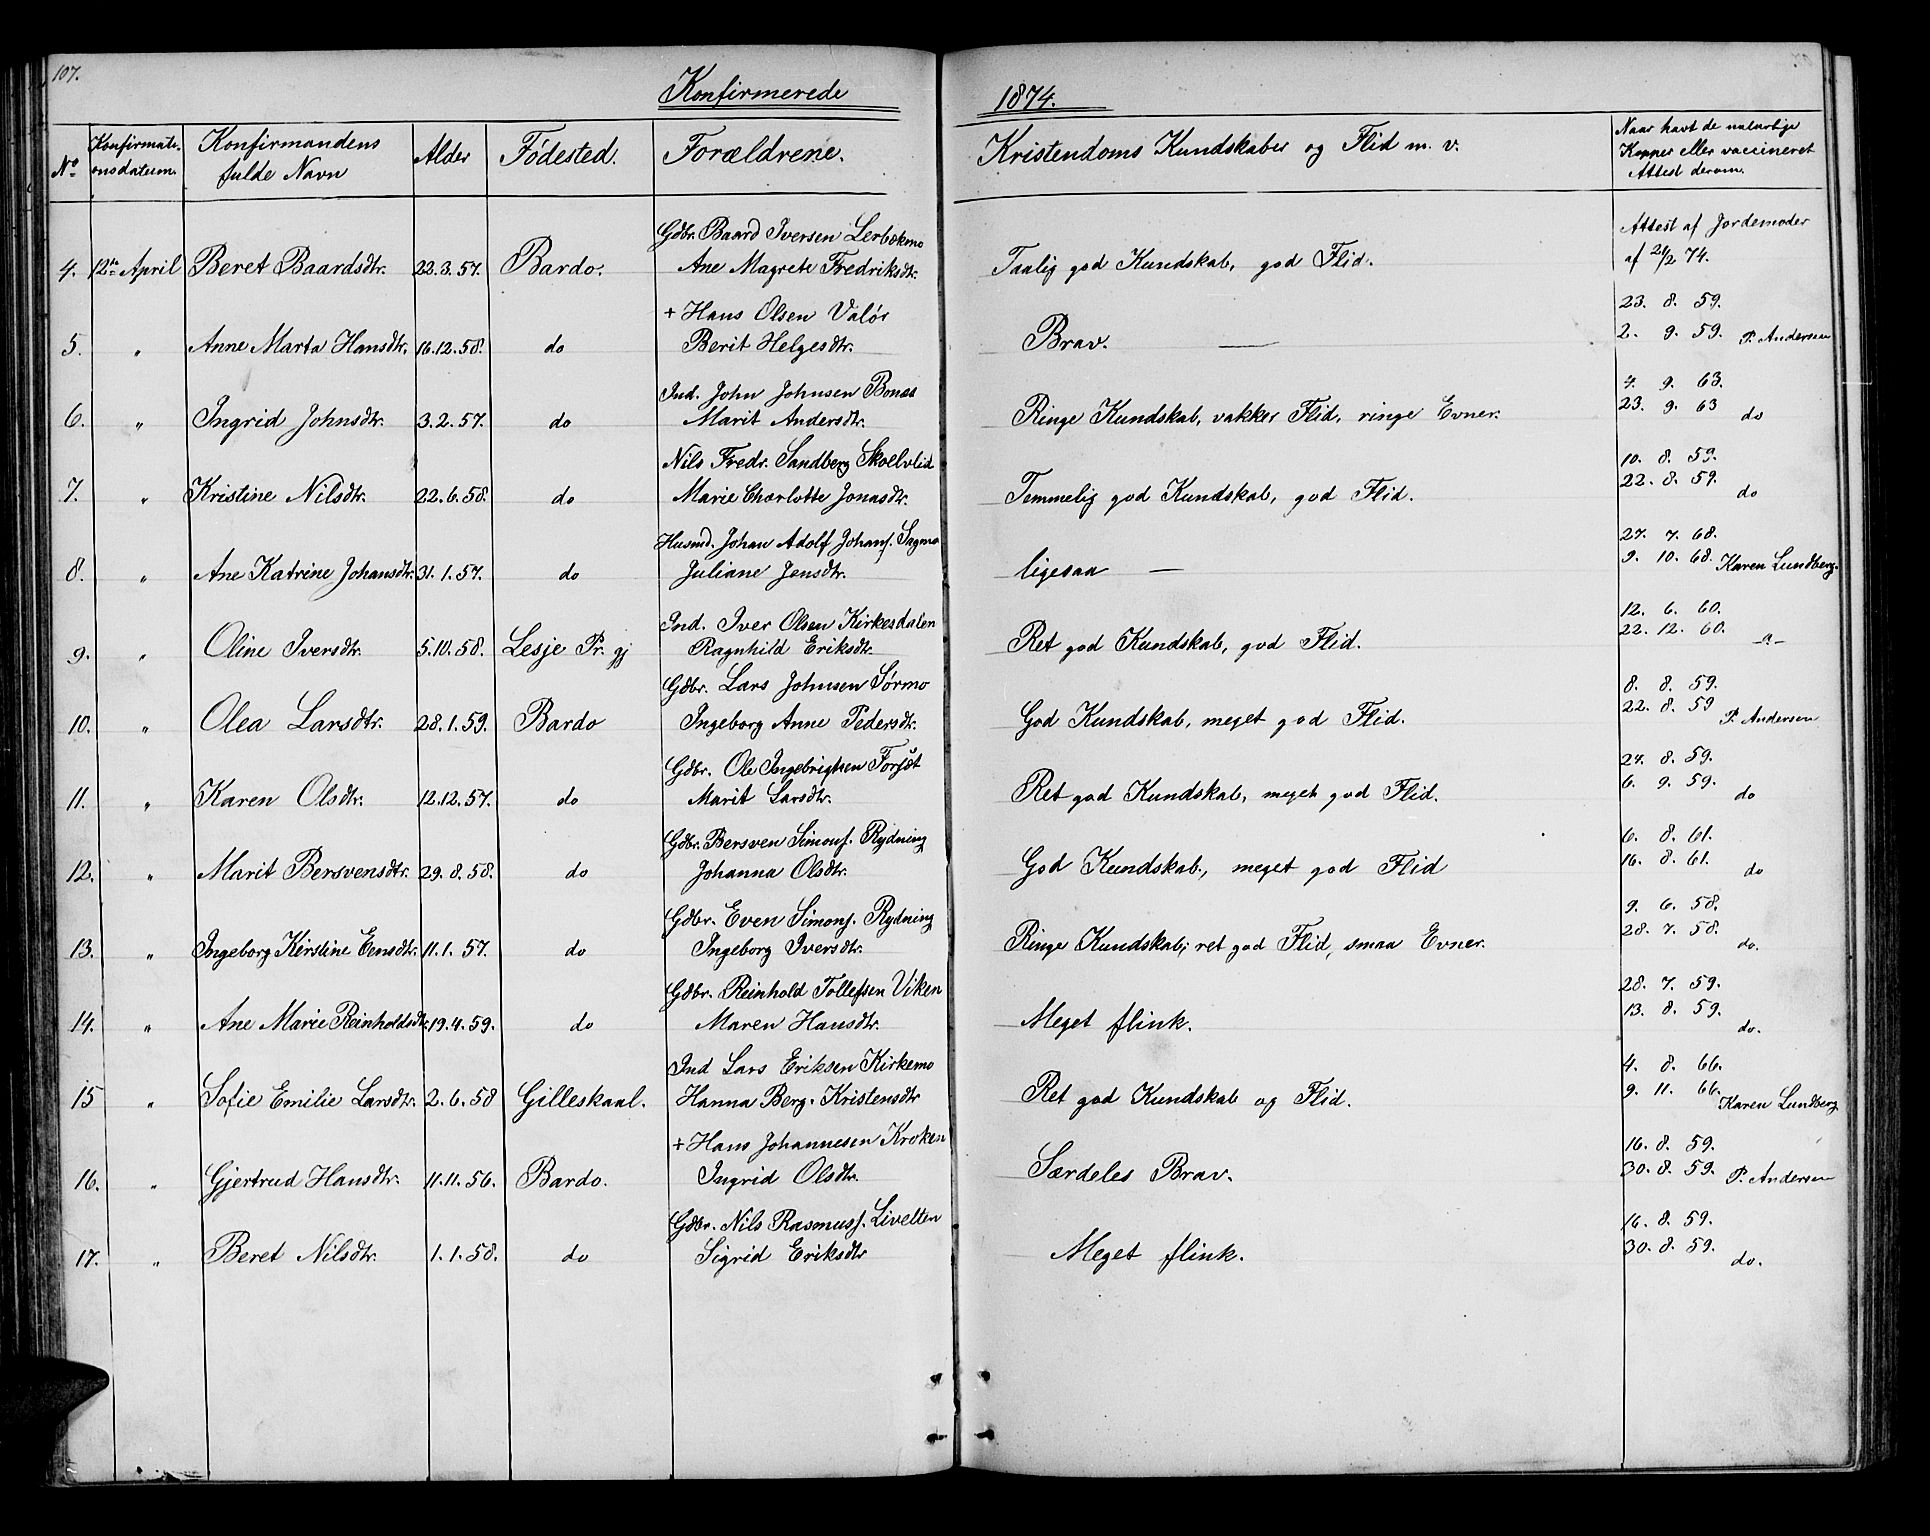 107.
Konfirmerede 1874.
No Konfirmati- onsdatum. Konfirmandens fulde Navn Alder Fødested. Forældrene. Kristendoms Kundskaber og Flid m. v. Naar havt de naturlige Kopper eller vaccineret Attest derom.
Gdbr. Baard Iversen Lerbækmo Attest af Jordemoder
4. 12te April Beret Baardsdtr. 22.3.57. Bardo. Ane Magrete Fredriksdtr. Taalig god Kundskab, god Flid. af 21/2 74.
+ Hans Olsen Valør 23. 8. 59.
5. " Anne Marta Hansdtr. 16.12.58. do Berit Helgesdtr. Brav. — 2. 9. 59. P. Andersen
Ind. John Johnsen Bonæs 4. 9. 63.
6. " Ingrid Johnsdtr. 3.2.57. do Marit Andersdtr. Ringe Kundskab, vakker Flid, ringe Evner. 23. 9. 63 do
Nils Fredr. Sandberg Skoelvlid 10. 8. 59.
7. " Kristine Nilsdtr. 22.6.58. do Marie Charlotte Jonasdtr. Temmelig god Kundskab, god Flid. 22. 8. 59. do
Husmd. Johan Adolf Johans. Sagmo 27. 7. 68.
8. " Ane Katrine Johansdtr. 31.1.57. do Juliane Jensdtr. ligesaa — 9. 10. 68. Karen Lundberg.
Ind. Iver Olsen Kirkesdalen 12. 6. 60.
9. " Oline Iversdtr. 5.10.58. Lesje Pr. gj Ragnhild Eriksdtr. Ret god Kundskab, god Flid. 22. 12. 60. -"-
Gdbr. Lars Johnsen Sørmo 8. 8. 59.
10. " Olea Larsdtr. 28.1.59. Bardo Ingeborg Anne Pedersdtr. God Kundskab, meget god Flid. 22. 8. 59 P. Andersen
Gdbr. Ole Ingebrigtsen Forsæt 24. 8. 59.
11. " Karen Olsdtr. 12.12.57. do Marit Larsdtr. Ret god Kundskab, meget god Flid. 6. 9. 59. do
Gdbr. Bersven Simons. Rydning 6. 8. 61.
12. " Marit Bersvensdtr. 29.8.58. do Johanna Olsdtr. God Kundskab, meget god Flid 16. 8. 61. do
Gdbr. Even Simons. Rydning 9. 6. 58.
13. " Ingeborg Kirstine Evensdtr. 11.1.57. do Ingeborg Iversdtr. Ringe Kundskab, ret god Flid, smaa Evner. 28. 7. 58. do.
Gdbr. Reinhold Tollefsen Viken 28. 7. 59.
14. " Ane Marie Reinholdsdtr. 19.4.59. do Maren Hansdtr. Meget flink. 13. 8. 59. do.
Ind Lars Eriksen Kirkemo 4. 8. 66.
15 " Sofie Emilie Larsdtr. 2.6.58 Gilleskaal. Hanna Berg. Kristensdtr Ret god Kundskab og Flid. 9. 11. 66. Karen Lundberg
+ Hans Johannesen Kroken 16. 8. 59.
16. " Gjertrud Hansdtr. 11.11.56. Bardo. Ingrid Olsdtr. Særdeles Brav. 30. 8. 59. P. Andersen
Gdbr. Nils Rasmuss. Livelten 16. 8. 59.
17. " Beret Nilsdtr. 1.1.58. do Sigrid Eriksdtr Meget flink. 30. 8. 59. do.